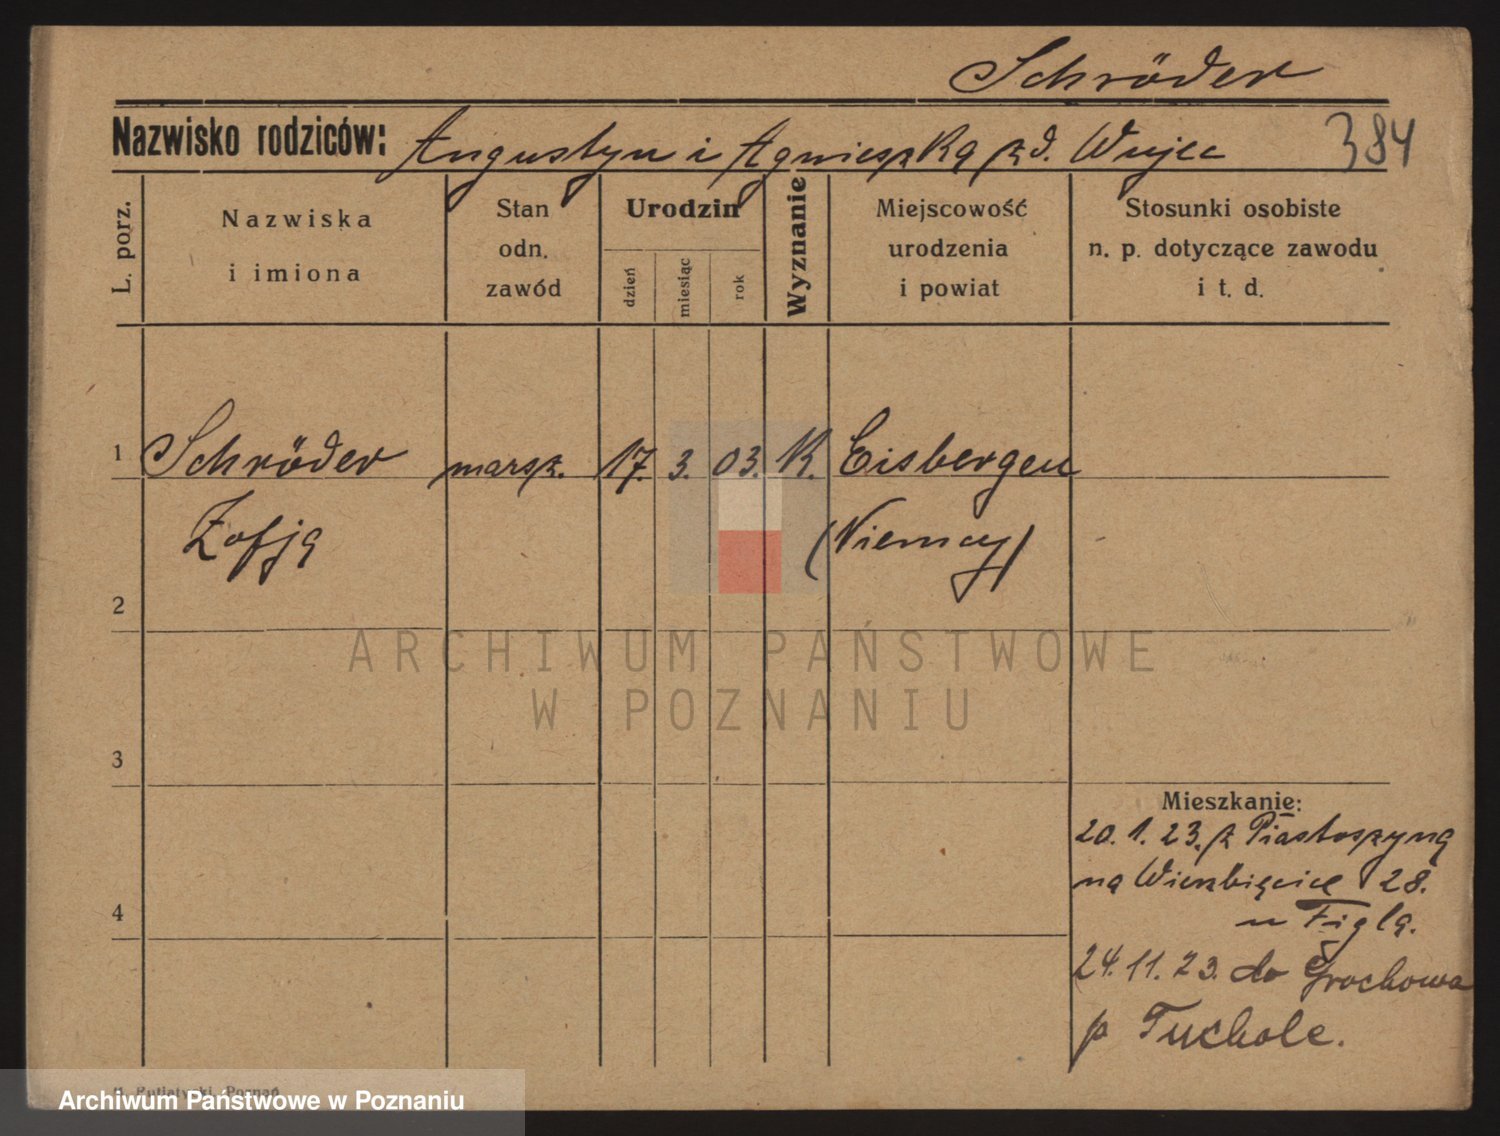 Schröder
Nazwisko rodziców: Augustyn i Agnieszka zd. Wujec
384
L. porz.
Nazwiska
i imiona
Stan
odn.
zawód
Urodzin
dzień
miesiąc
rok
Wyznanie
Miejscowość
urodzenia
i powiat
Stosunki osobiste
n. p. dotyczące zawodu
i t. d.
1 Schröder marsz. 17. 3. 03. K. Eisbergen
Zofja (Niemcy)
2
3
Mieszkanie:
20. 1. 23. z Piastoszyna
na Wierzbięcice 28.
4
u Figla.
24. 11. 23. do Grochowa
p Tuchole.
ARCHIWUM PAŃSTWOWE
W POZNANIU
Poznań
Archiwum Państwowe w Poznaniu